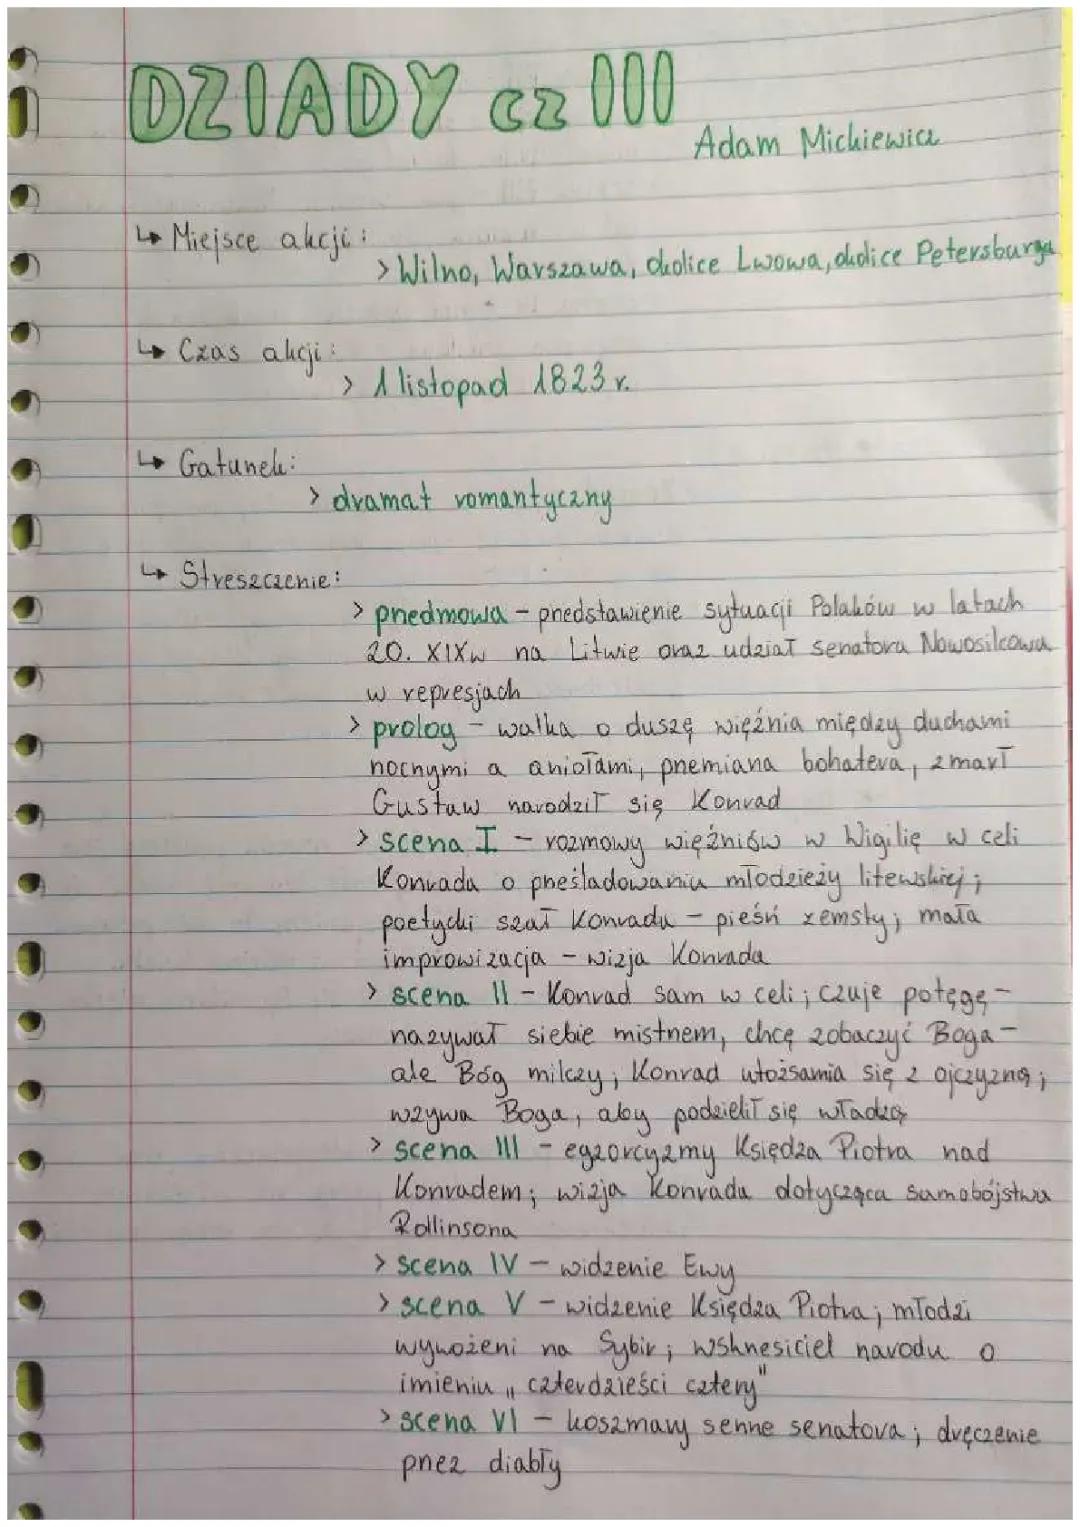 DZIADY cz III
Adam Mickiewicz
↳ Miejsce akcji:
> Wilno, Warszawa, okolice Lwowa, okolice Petersburga
↳ Czas akcji:
> 1 listopad 1823 r.
↳ Gatunek:
> dramat romantyczny
↳ Streszczenie:
> przedmowa – przedstawienie sytuacji Polaków w latach
20. XIXw na Litwie oraz udział senatora Nowosilcowa
w represjach
> prolog – walka o duszę więźnia między duchami
nocnymi a aniołami, przemiana bohatera, zmarł
Gustaw narodził się Konrad
> scena I – rozmowy więźniów w Wigilię w celi
Konrada o prześladowaniu młodzieży litewskiej;
poetycki szał Konrada – pieśń zemsty; mała
improwizacja – wizja Konrada
> scena II – Konrad sam w celi; czuje potęgę –
nazywał siebie mistrzem, chcę zobaczyć Boga –
ale Bóg milczy; Konrad utożsamia się z ojczyzną;
wzywa Boga, aby podzielił się władzą
> scena III – egzorcyzmy Księdza Piotra nad
Konradem; wizja Konrada dotycząca samobójstwa
Rollinsona
> scena IV – widzenie Ewy
> scena V – widzenie Księdza Piotra; młodzi
wywożeni na Sybir; wskrzesiciel narodu o
imieniu „czterdzieści cztery"
> scena VI – koszmary senne senatora; dręczenie
przez diabły